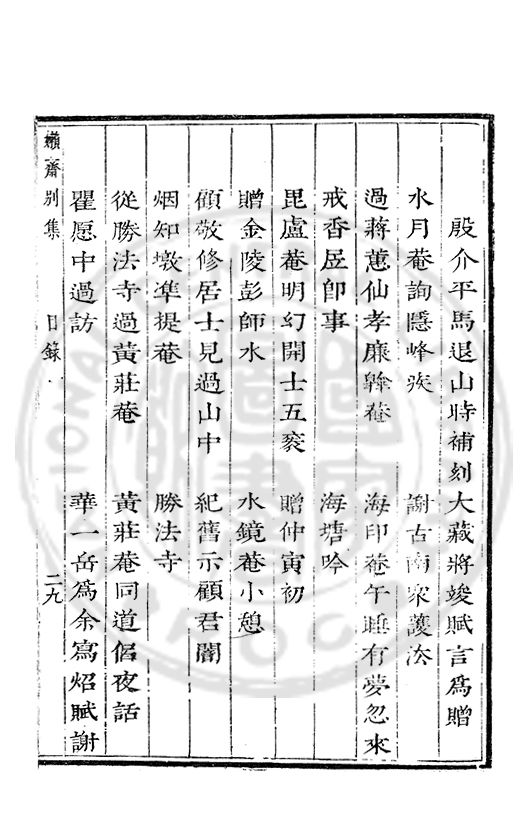 殷介平馬退山時補刻大藏將竣賦言為贈
水月菴詢隱峰疾　謝古南眾護法
過蔣蕙仙孝廉斡菴　海印菴午睡有夢忽來
戒香居即事　海塘吟
毘盧菴明幻開士五袠　贈仲寅初
贈金陵彭師水　水鏡菴小憩
顧敬修居士見過山中　紀舊示顧君闇
烟知墩準提菴　勝法寺
從勝法寺過黃莊菴　黃莊菴同道侶夜話
瞿愿中過訪　華一岳為余寫炤賦謝
嬾齋別集　目錄　二九